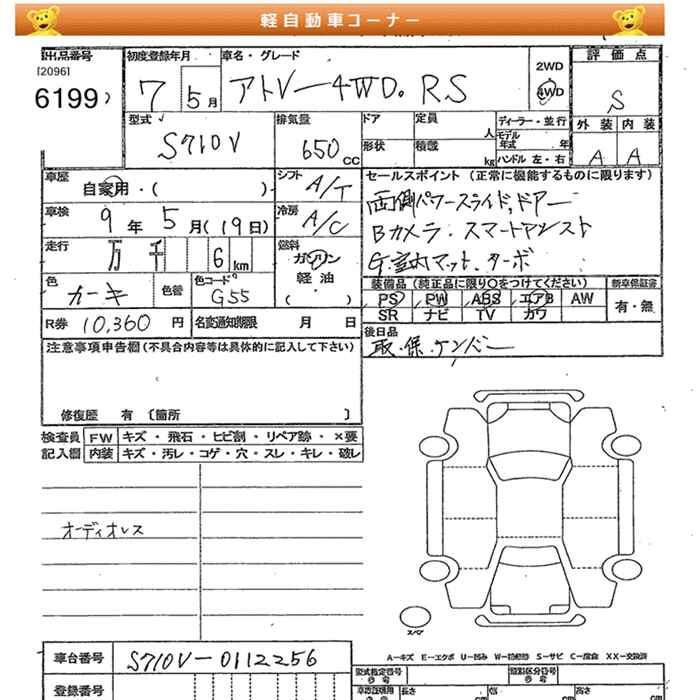 軽自動車コーナー
出品番号 初度登録年月 車名・グレード 2WD 評価点
[2096]
6199 7 5月 アトレー4WD. RS 4WD S
型式 S710V 排気量 650 CC ドア 定員 人 ディーラー・並行 外装 内装
形状 積載 kg モデル年式 年 A A
ハンドル 左・右
車歴 自家用・( ) シフト A/T セールスポイント (正常に機能するものに限ります)
車検 9年5月(19日) 冷房 A/C 両側パワースライドドアー
Bカメラ・スマートアシスト
走行 万 千 6 km 燃料 ガソリン 軽油 ( ) G.室内マット.ターボ
色 カーキ 色替 色コードNo G55 装備品 (純正品に限り○をつけてください) 新車保証書
PS PW ABS エアB AW 有・無
SR ナビ TV カワ
R券 10,360円 名変通知期限 月 日
後日品
注意事項申告欄 (不具合内容等は具体的に記入して下さい) 取・保・ナンバー
修復歴 有 〔箇所 〕
検査員 FW キズ・飛石・ヒビ割・リペア跡・×要
記入欄 内装 キズ・汚レ・コゲ・穴・スレ・キレ・破レ
オーディオレス
スペア
A―キズ E―エクボ U―凹み W―補修跡 S―サビ C―腐食 XX―交換済
車台番号 S710V-0112256
型式指定番号 類別区分番号
登録番号 長さ cm 幅 cm 高さ cm